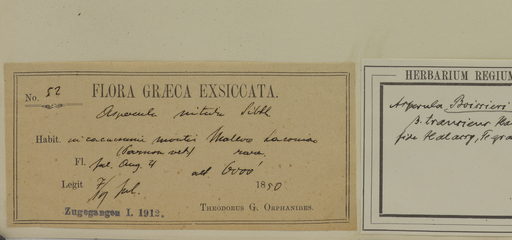 No. 52 FLORA GRÆCA EXSICCATA.
Asperula nitida Sibth
Habit. in cacumine montis Malevo Laconiae
(Parnon vet.) rara.
Fl. Jul. Aug. alt 6000'
Legit Jul. 1850
Zugegangen I. 1912. THEODORUS G. ORPHANIDES.
HERBARIUM REGIUM
Asperula Boissieri
β. transiens Hau
fide Halácsy, Fl. gra